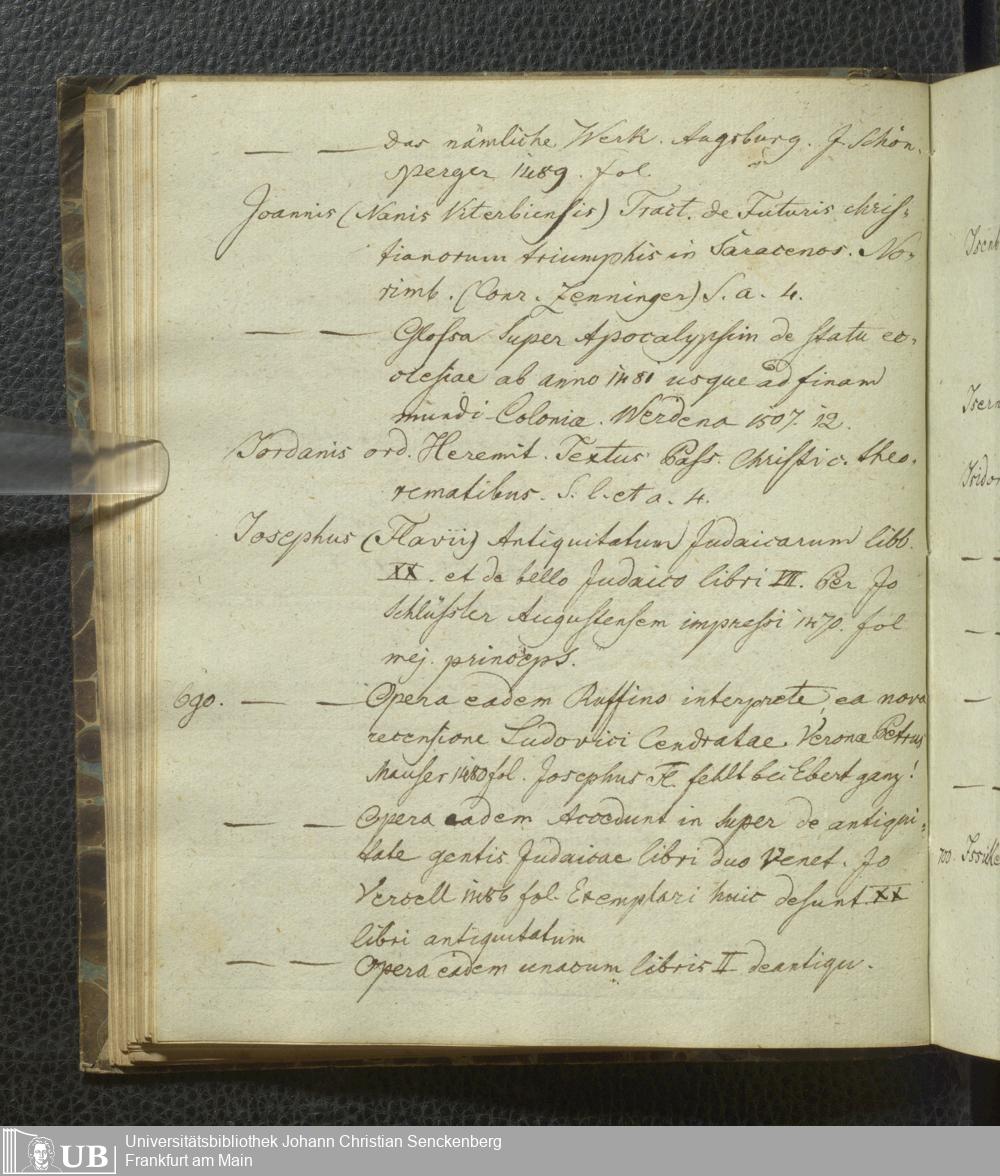 — — Das nämliche Werk. Augsburg. J. Schön-
sperger 1489. fol.
Joannis (Nanis Viterbiensis) Tract. de Futuris chris-
tianorum triumphis in Saracenos. No-
rimb. (Conr. Zenninger) S. a. 4.
— — Glossa super Apocalypsim de statu ec-
clesiae ab anno 1481 usque ad finam
mundi Coloniæ. Werdena 1507. 12.
Jordanis ord. Heremit. Textus Pass. Christi c. theo-
rematibus. S. l. et a. 4.
Josephus (Flavii) Antiquitatum Judaicarum libb.
XX. et de bello Judaico libri VII. Per Jo
Schlüssler Augustensem impressi 1470. fol
mej. princeps.
690. — — Opera eadem Ruffino interprete, ea nova
recensione Ludovici Cendratae. Veronæ Petrus
Mauser 1480 fol. Josephus Fl. fehlt bei Ebert ganz!
— — Opera eadem Accedunt in super de antiqui-
tate gentis Judaicae libri duo Venet. Jo
Vercell 1486 fol. Exemplari huic desunt XX
libri antiquitatum
— — Opera eadem unacum libris II de antiqu.
700.
UB
Universitätsbibliothek Johann Christian Senckenberg
Frankfurt am Main